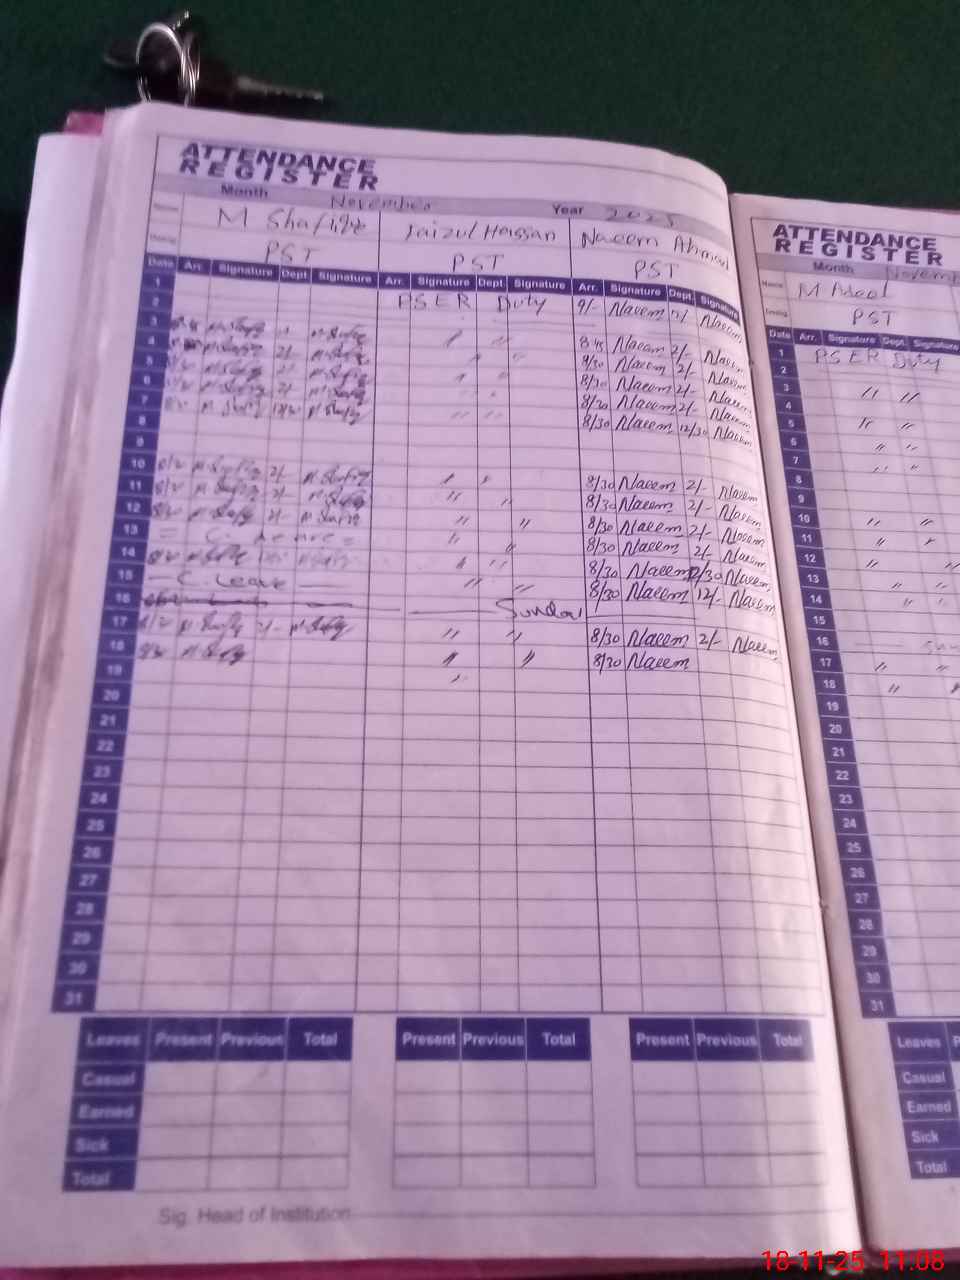 ATTENDANCE
REGISTER
Month November Year 2025
Name M Shafiq Faizul Hassan Naeem Ahmad
PST PST PST
Date Arr. Signature Dept. Signature Arr. Signature Dept. Signature Arr. Signature Dept. Signature
1 PSER Duty 9/- Naeem 2/- Naeem
2
3 〃 〃 8/45 Naeem 2/- Naeem
4 〃 〃 8/30 Naeem 2/- Naeem
5 〃 〃 8/30 Naeem 2/- Naeem
6 〃 〃 8/30 Naeem 2/- Naeem
7 〃 〃 8/30 Naeem 12/30 Naeem
8
9
10 M Shafiq 2/- M Shafiq 〃 〃 8/30 Naeem 2/- Naeem
11 M Shafiq 2/- M Shafiq 〃 〃 8/30 Naeem 2/- Naeem
12 M Shafiq 2/- M Shafiq 〃 〃 8/30 Naeem 2/- Naeem
13 C. Leave 〃 〃 8/30 Naeem 2/- Naeem
14 〃 〃 8/30 Naeem 12/30 Naeem
15 C. Leave 〃 〃 8/30 Naeem 12/- Naeem
16 Sunday
17 M Shafiq 2/- M Shafiq 〃 〃 8/30 Naeem 2/- Naeem
18 8/30 M Shafiq 〃 〃 8/30 Naeem
19 〃
20
21
22
23
24
25
26
27
28
29
30
31
Leaves Present Previous Total Present Previous Total Present Previous Total
Casual
Earned
Sick
Total
Sig. Head of Institution
ATTENDANCE
REGISTER
Month Novemb
Name M Afzal
PST
Date Arr. Signature Dept. Signature
1 PSER Duty
2
3 〃 〃
4
5 〃 〃
6 〃 〃
7 〃 〃
8
9
10 〃 〃
11 〃 〃
12 〃 〃
13 〃 〃
14 〃 〃
15
16 Sun
17 〃 〃
18 〃 〃
19
20
21
22
23
24
25
26
27
28
29
30
31
Leaves P
Casual
Earned
Sick
Total
18-11-25 11:08